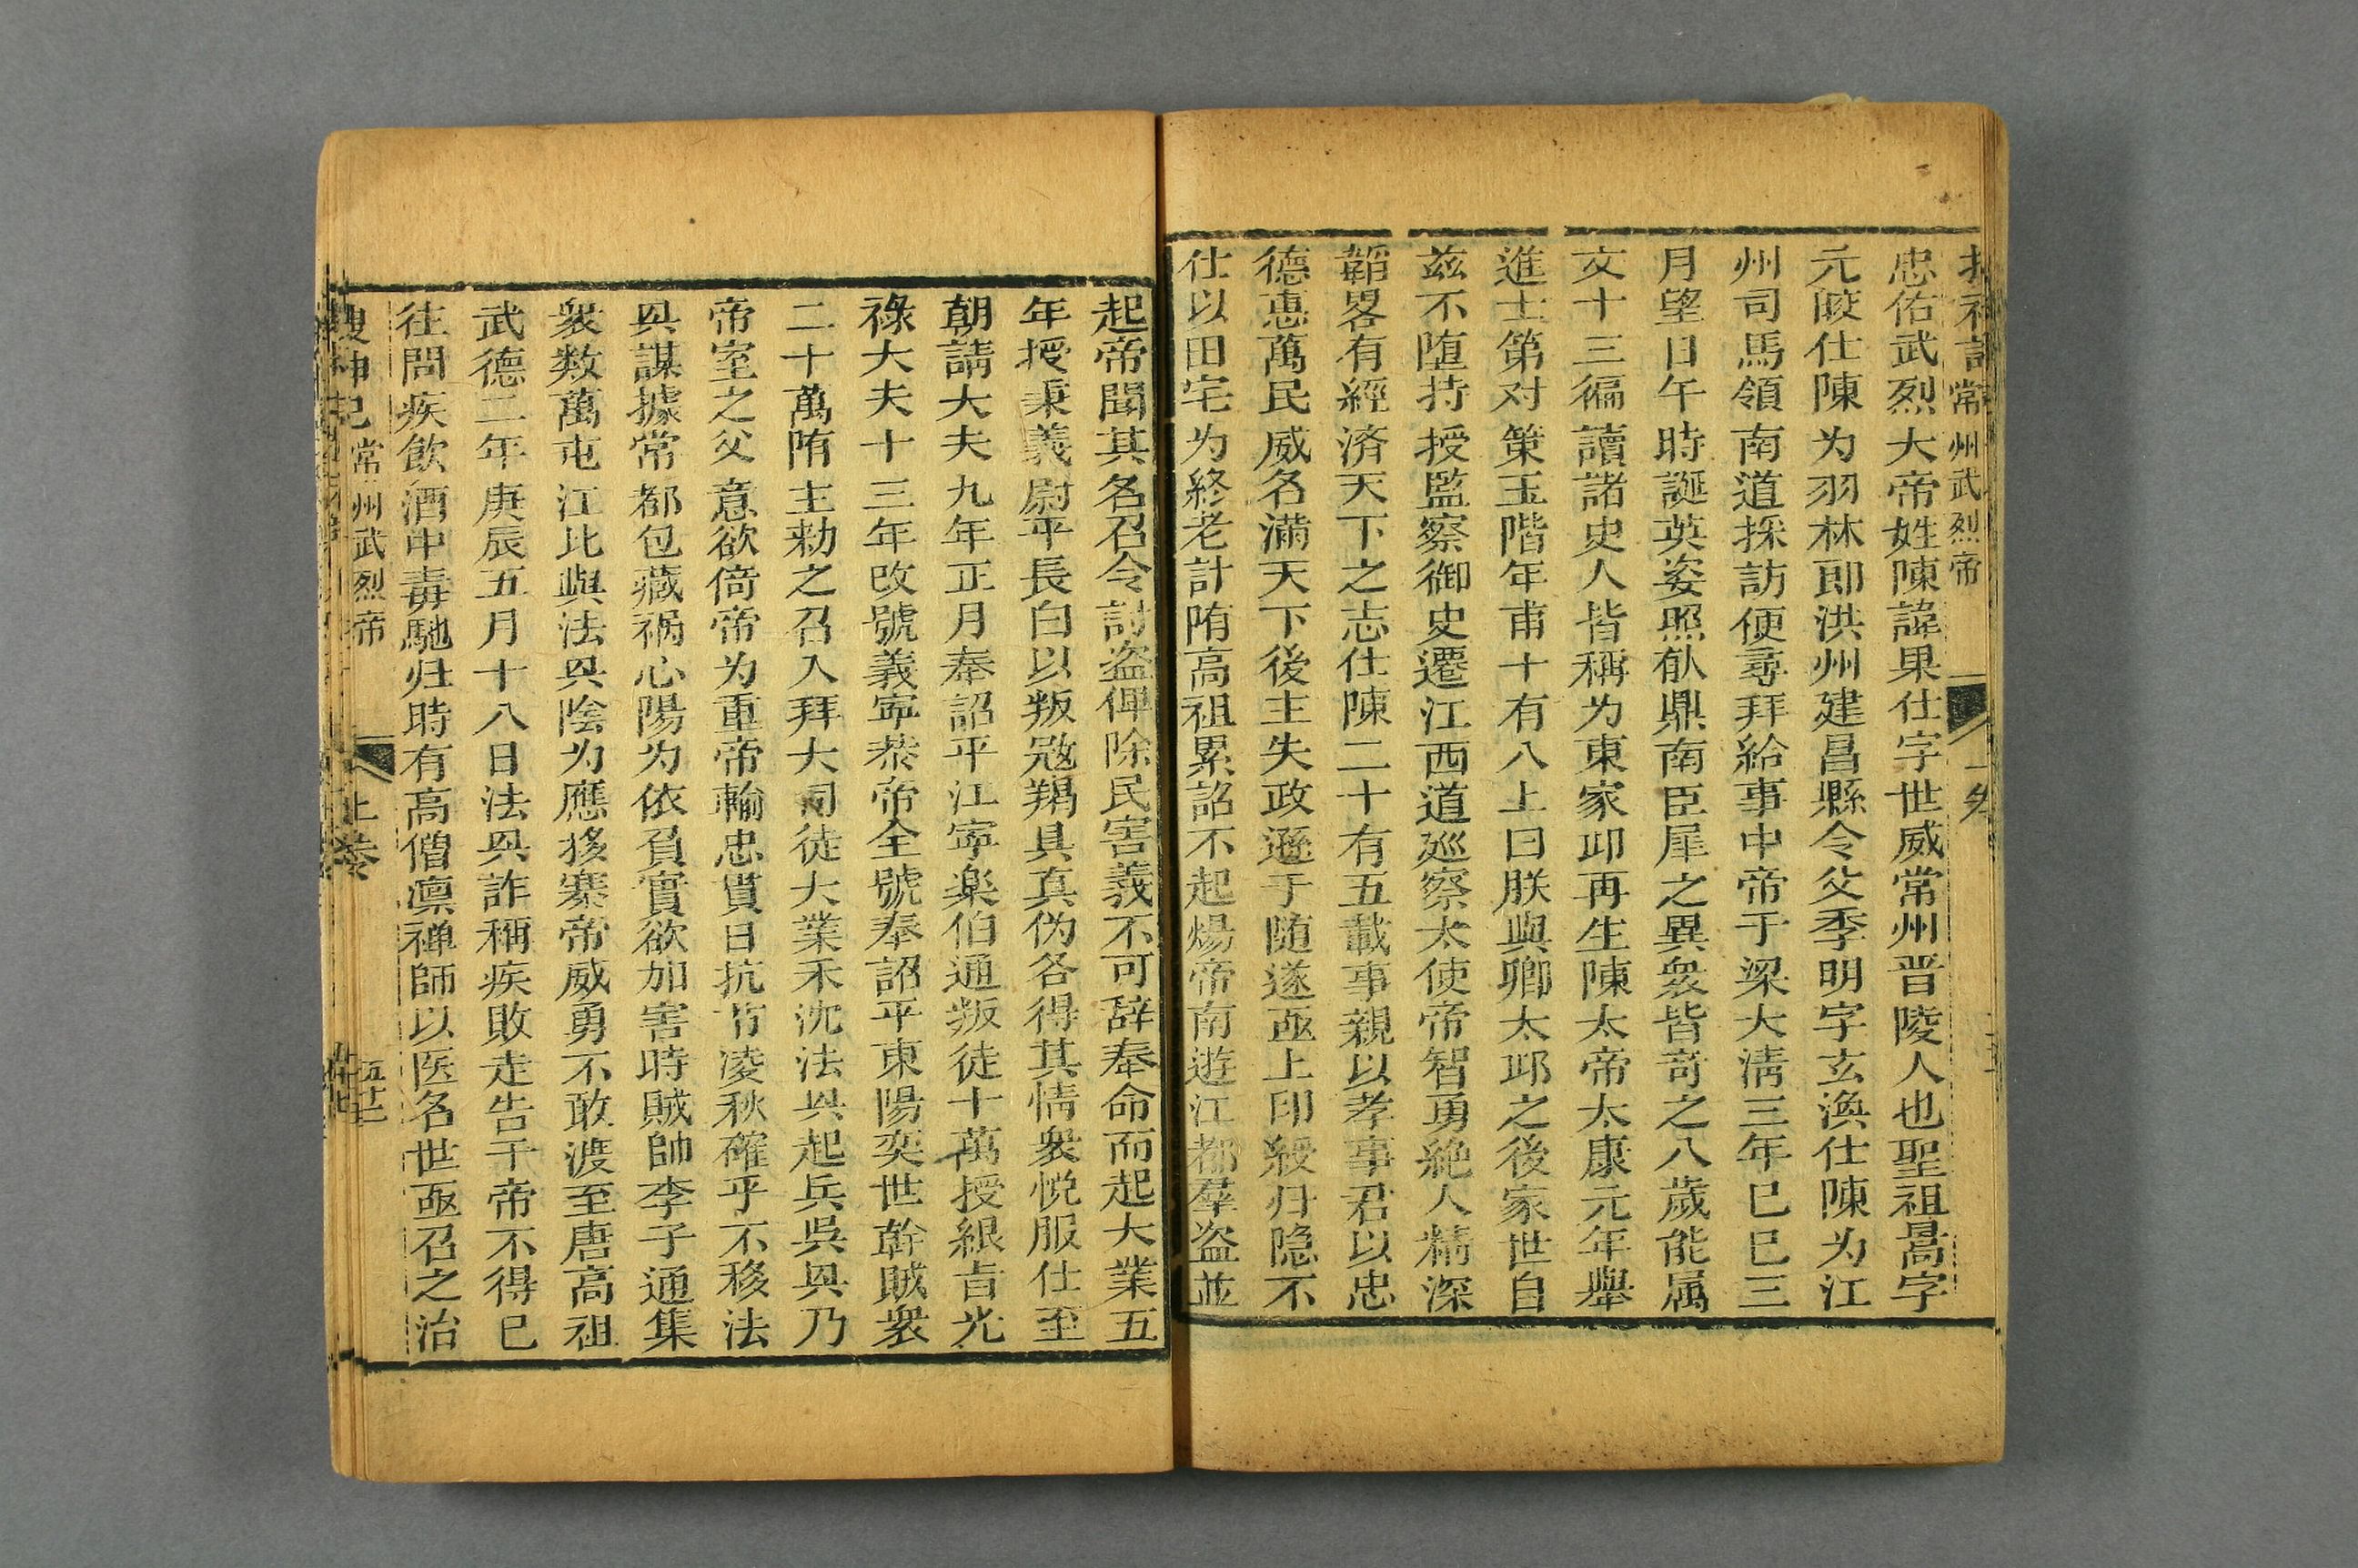 搜神記 常州武烈帝 上卷
忠佑武烈大帝姓陳諱果仕字世威常州晋陵人也聖祖暠字
元皎仕陳为羽林郎洪州建昌縣令父季明字玄渙仕陳为江
州司馬領南道採訪使尋拜給事中帝于梁大淸三年己巳三
月望日午時誕英姿照㸔鼎南臣犀之異衆皆竒之八歲能属
文十三徧讀諸史人皆稱为東家丘再生陳太帝太康元年舉
進士第对策玉階年甫十有八上曰朕與卿太丘之後家世自
兹不墮持授監察御史遷江西道廵察太使帝智勇絶人精深
韜畧有經济天下之志仕陳二十有五載事親以孝事君以忠
德惠萬民威名滿天下後主失政遜于随遂亟上印綬归隐不
仕以田宅为終老計陏高祖累詔不起煬帝南遊江都羣盗並
起帝聞其名召令討盗俾除民害義不可辞奉命而起大業五
年授秉義尉平長白以叛冦羯具真伪各得其情衆悅服仕至
朝請大夫九年正月奉詔平江寧楽伯通叛徒十萬授銀青光
祿大夫十三年改號義寧恭帝全號奉詔平東陽奕世幹賊衆
二十萬陏主勅之召入拜大司徒大業禾沈法㒷起兵吳㒷乃
帝室之父意欲倚帝为重帝輸忠貫日抗节凌秋確乎不移法
㒷謀據常都包藏祸心陽为依負實欲加害時賊帥李子通集
衆数萬屯江北與法㒷陰为應移寨帝威勇不敢渡至唐高祖
武德二年庚辰五月十八日法㒷詐稱疾敗走告于帝不得已
往問疾飲酒中毒馳归時有高僧凛禅師以医名世亟召之治
搜神記 常州武烈帝 上卷 五十二